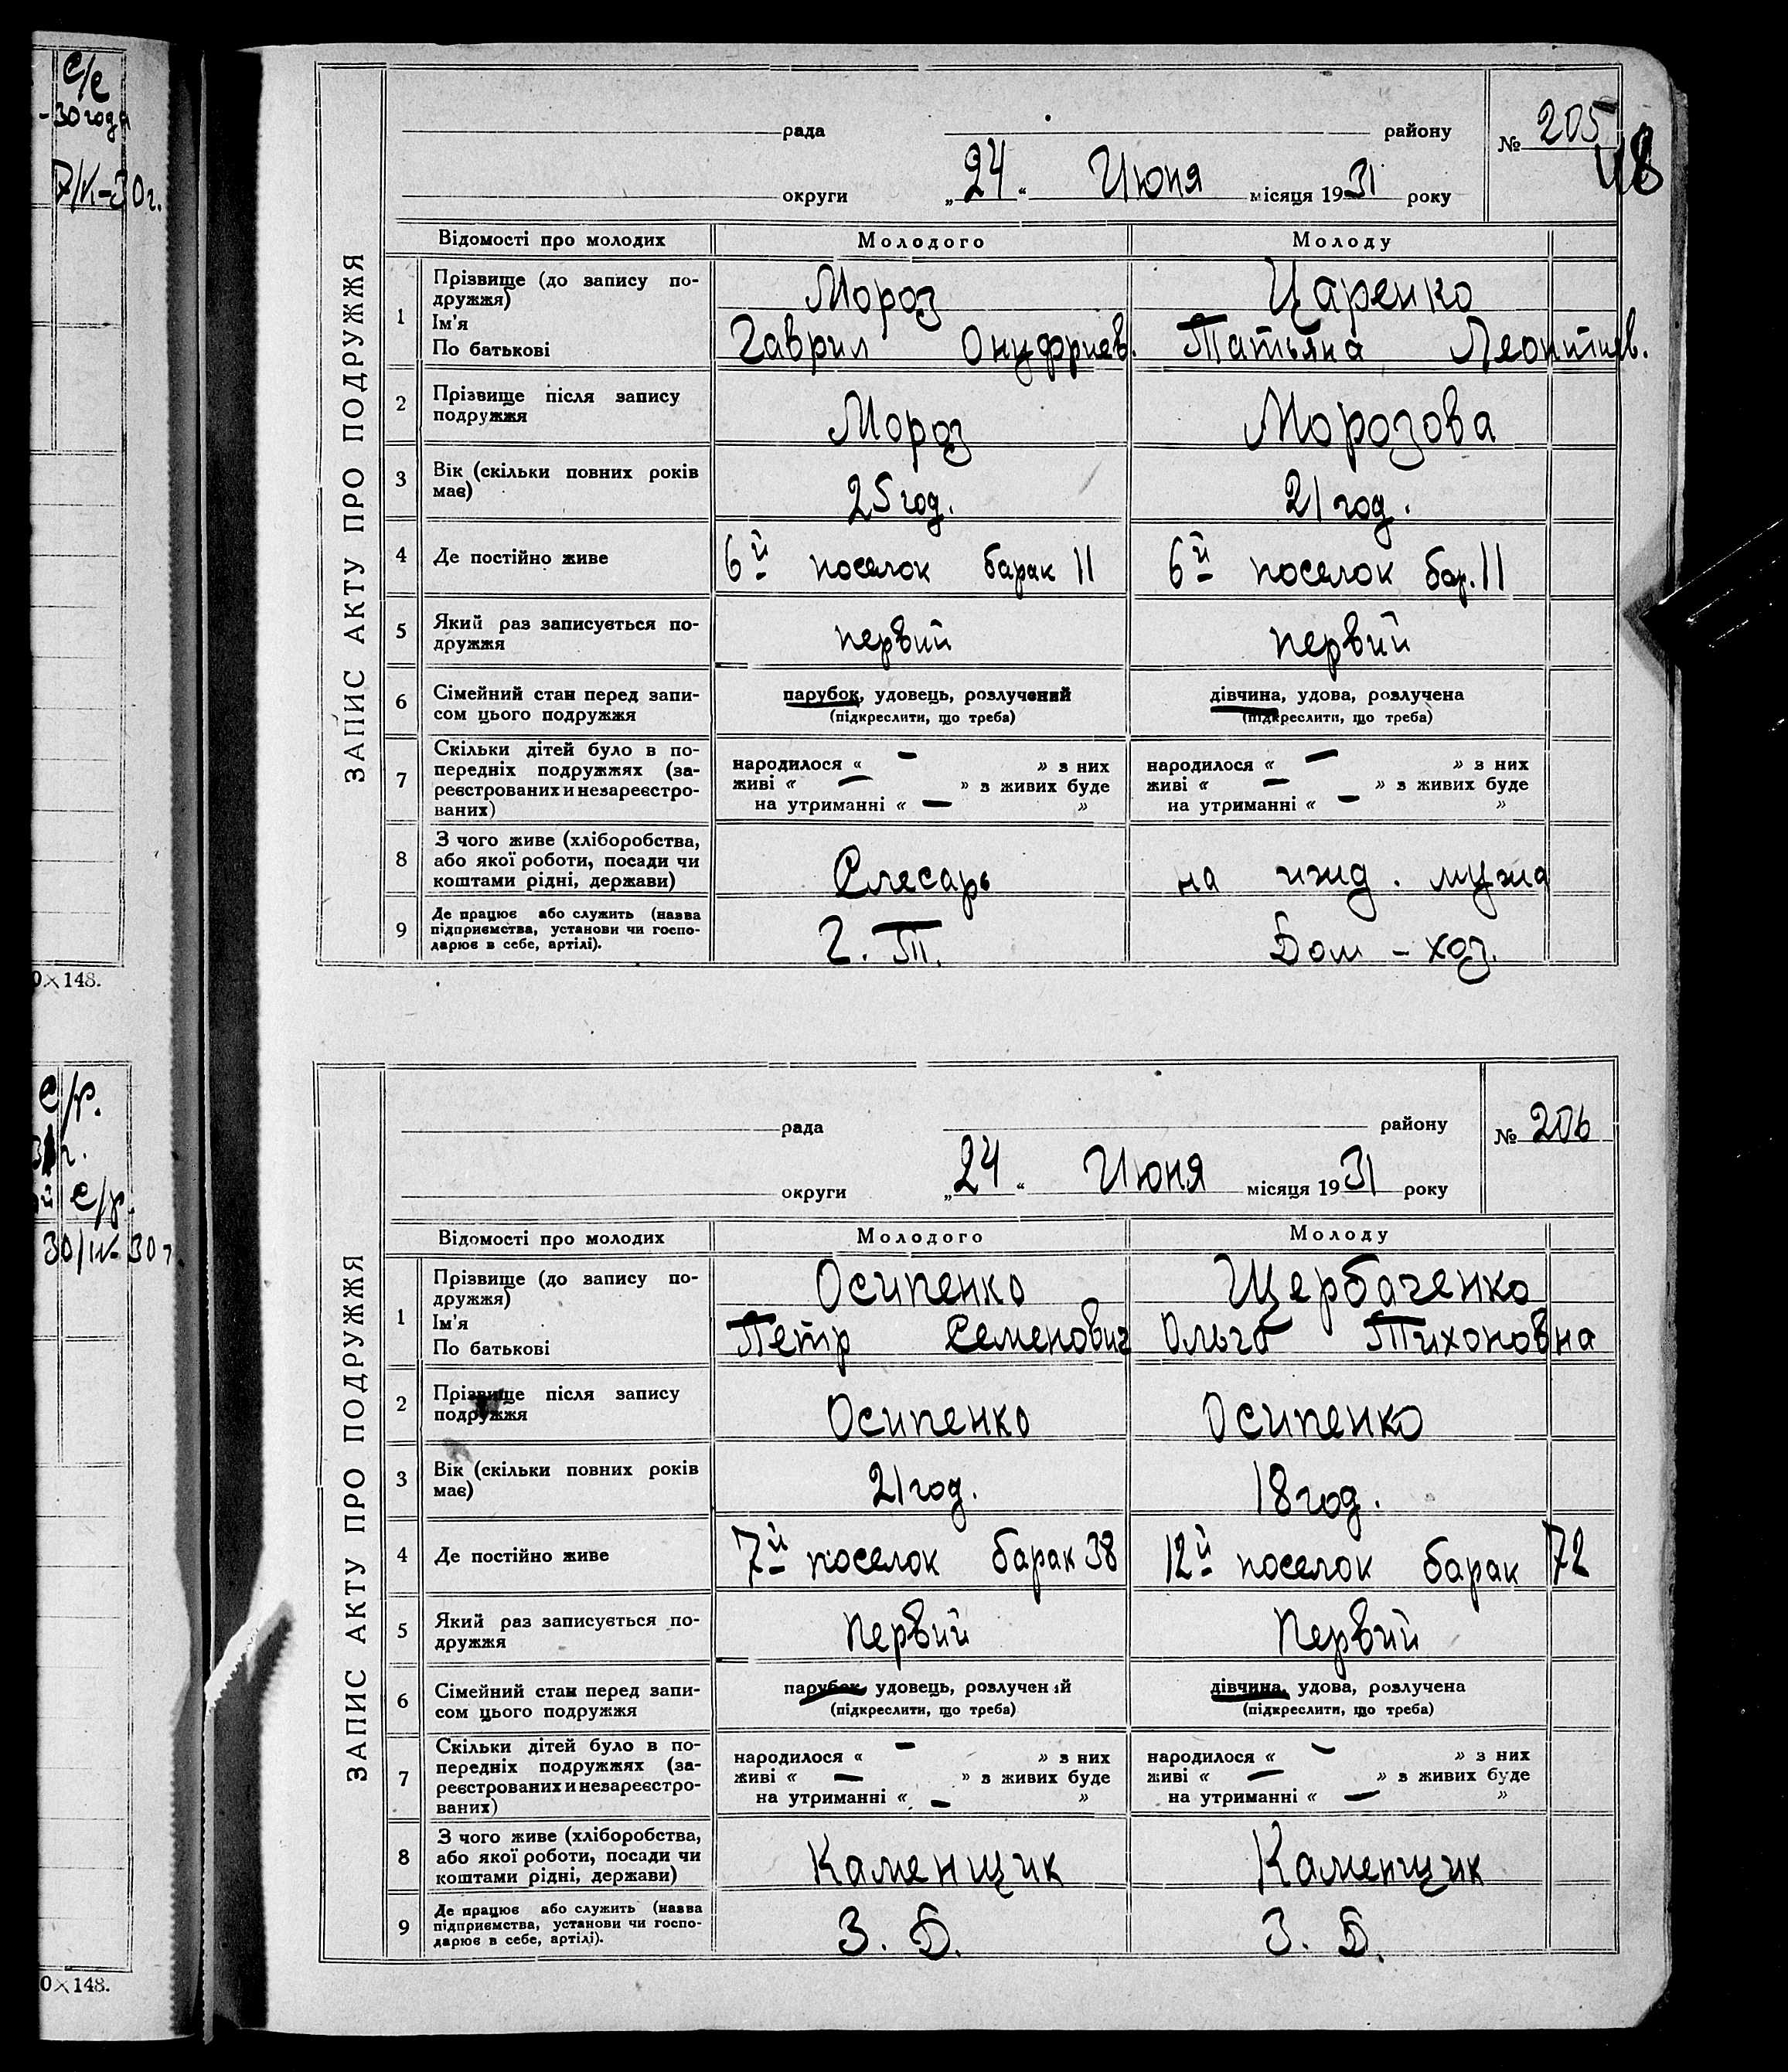 С/С
-30 года
7/VI-30 г.
0×148.
С/р.
г.
й С/р.
30/IV-30 г
0×148.
48
ЗАПИС АКТУ ПРО ПОДРУЖЖЯ
рада району № 205
округи „24“ Июня місяця 1931 року
Відомості про молодих Молодого Молоду
1 Прізвище (до запису по-
дружжя) Мороз Царенко
Ім'я
По батькові Гаврил Онуфриев. Татьяна Леонтиев.
2 Прізвище після запису
подружжя Мороз Морозова
3 Вік (скільки повних років
має) 25 год. 21 год.
4 Де постійно живе 6й поселок барак 11 6й поселок бар. 11
5 Який раз записується по-
дружжя первий первий
6 Сімейний стан перед запи- парубок, удовець, розлучений дівчина, удова, розлучена
сом цього подружжя (підкреслити, що треба) (підкреслити, що треба)
7 Скільки дітей було в по-
передніх подружжях (за- народилося « — » з них народилося « — » з них
реєстрованих и незареєстро- живі « — » з живих буде живі « — » з живих буде
ваних) на утриманні « — » на утриманні « — »
8 З чого живе (хліборобства,
або якої роботи, посади чи
коштами рідні, держави) Слесарь на ижд. мужа
9 Де працює або служить (назва
підприємства, установи чи госпо-
дарює в себе, артілі). Г. П. Дом - хоз.
ЗАПИС АКТУ ПРО ПОДРУЖЖЯ
рада району № 206
округи „24“ Июня місяця 1931 року
Відомості про молодих Молодого Молоду
1 Прізвище (до запису по-
дружжя) Осипенко Щербаченко
Ім'я
По батькові Петр Семенович Ольга Тихоновна
2 Прізвище після запису
подружжя Осипенко Осипенко
3 Вік (скільки повних років
має) 21 год. 18 год.
4 Де постійно живе 7й поселок барак 38 12й поселок барак 72
5 Який раз записується по-
дружжя Первий Первий
6 Сімейний стан перед запи- парубок, удовець, розлучен й дівчина, удова, розлучена
сом цього подружжя (підкреслити, що треба) (підкреслити, що треба)
7 Скільки дітей було в по-
передніх подружжях (за- народилося « — » з них народилося « — » з них
реєстрованих и незареєстро- живі « — » з живих буде живі « — » з живих буде
ваних) на утриманні « — » на утриманні « — »
8 З чого живе (хліборобства,
або якої роботи, посади чи
коштами рідні, держави) Каменщик Каменщик
9 Де працює або служить (назва
підприємства, установи чи госпо-
дарює в себе, артілі). З. Б. З. Б.